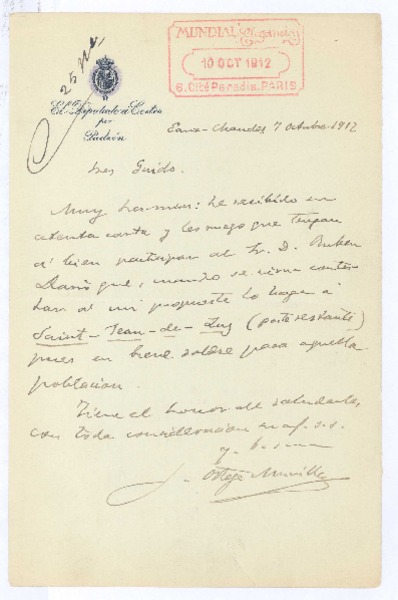 25 Nv.
El Diputado a Cortes
por
Padrón
MUNDIAL Magazine
10 OCT 1912
6. Cité Paradis. PARIS
Eaux-Chaudes 7 octubre-1912
Sres Guido.
Muy Sres mios: he recibido su
atenta carta y les ruego que tengan
á bien participar al Sr. D. Ruben
Dario que, cuando se sirva contes-
tar á mi propuesta lo haga á
Saint-Jean-de-Luz (poste restante)
pues en breve saldré para aquella
población.
Tiene el honor de saludarle,
con toda consideracion su af. s.s.
q. b. s. m.
J. Ortega Munilla